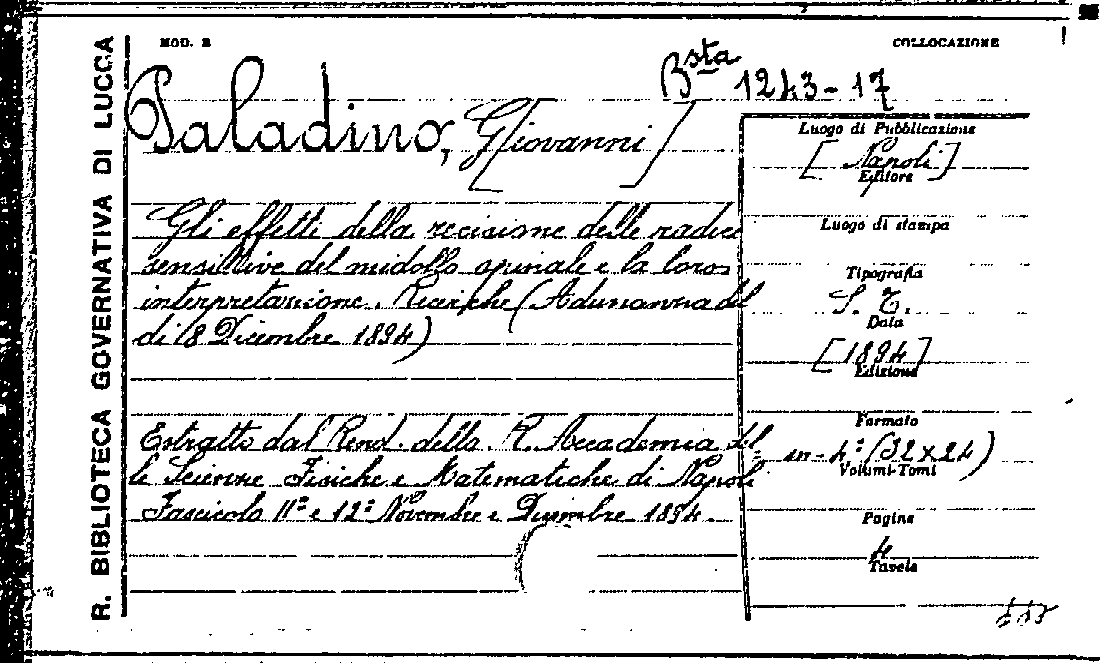 R. BIBLIOTECA GOVERNATIVA DI LUCCA
MOD. E
COLLOCAZIONE
Bsta 1243-17
Paladino, G[iovanni]
Gli effetti della recisione delle radici
sensitive del midollo spinale e la loro
interpretazione. Ricerche (Adunanza del
dì 8 Dicembre 1894)
Estratto dal Rend. della R. Accademia del=
le Scienze Fisiche e Matematiche di Napoli
Fascicolo 11° e 12° Novembre e Dicembre 1894.
Luogo di Pubblicazione
[Napoli]
Editore
Luogo di stampa
Tipografia
S. T.
Data
[1894]
Edizione
Formato
in-4° (32x24)
Volumi-Tomi
Pagine
4
Tavole